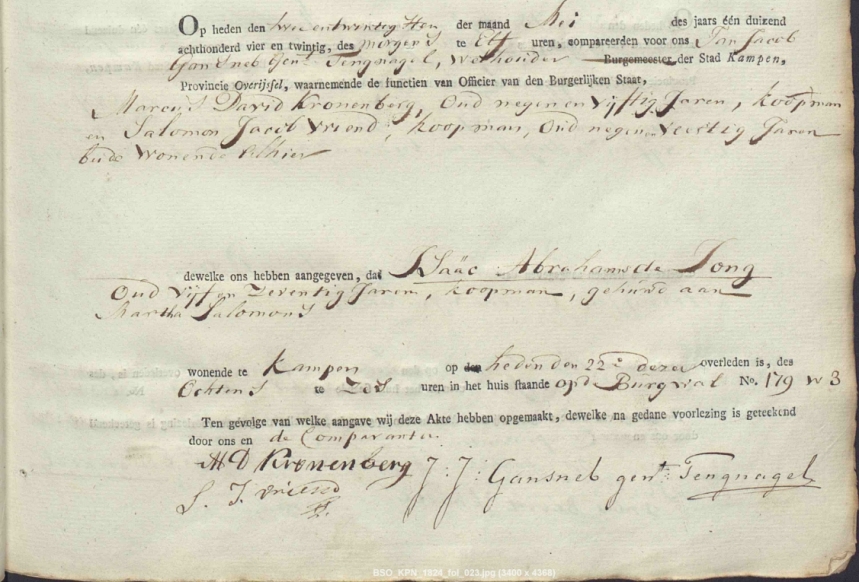 Op heden den twee entwintigsten der maand Mei des jaars één duizend
achthonderd vier en twintig, des morgens te Elf uren, compareerden voor ons Jan Jacob
Gansneb Gent. Tengnagel, Wethouder Burgemeester der Stad Kampen,
Provincie Overijssel, waarnemende de functien van Officier van den Burgerlijken Staat,
Marcus David Kronenberg, Oud negen en Vijftig Jaren, Koopman
en Salomon Jacob Vriend, Koopman, Oud negen Jaren
beide Wonende Alhier
dewelke ons hebben aangegeven, dat Isaäc Abrahams de Jong
Oud Vijf en Zeventig Jaren, Koopman, gehuwd aan
Martha Salomons
wonende te Kampen op den heden den 22e dezer overleden is, des
Ochtens te Zes uren in het huis staande op de Burgwal No. 179 W 3
Ten gevolge van welke aangave wij deze Akte hebben opgemaakt, dewelke na gedane voorlezing is geteekend
door ons en de Comparanten
M D Kronenberg J: J: Gansneb gent. Tengnagel
S. J. Vriend
BSO_KPN_1824_fol_023.jpg (3400 x 4368)